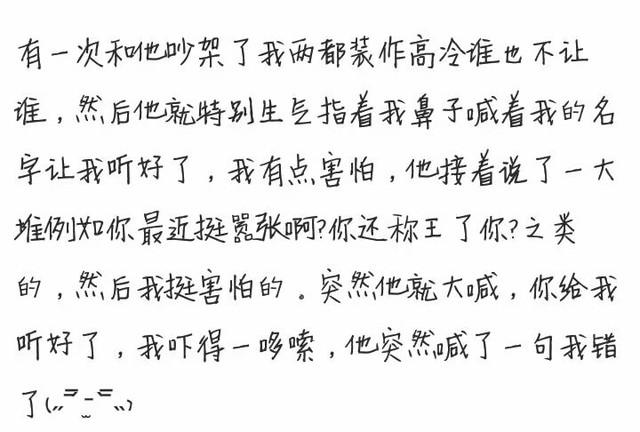 有一次和他吵架了我两都装作高冷谁也不让
谁,然后他就特别生气指着我鼻子喊着我的名
字让我听好了,我有点害怕,他接着说了一大
堆例如你最近挺嚣张啊?你还称王了你?之类
的,然后我挺害怕的。突然他就大喊,你给我
听好了,我吓得一哆嗦,他突然喊了一句我错
了(˶‾᷄ ⁻̫ ‾᷅˵)